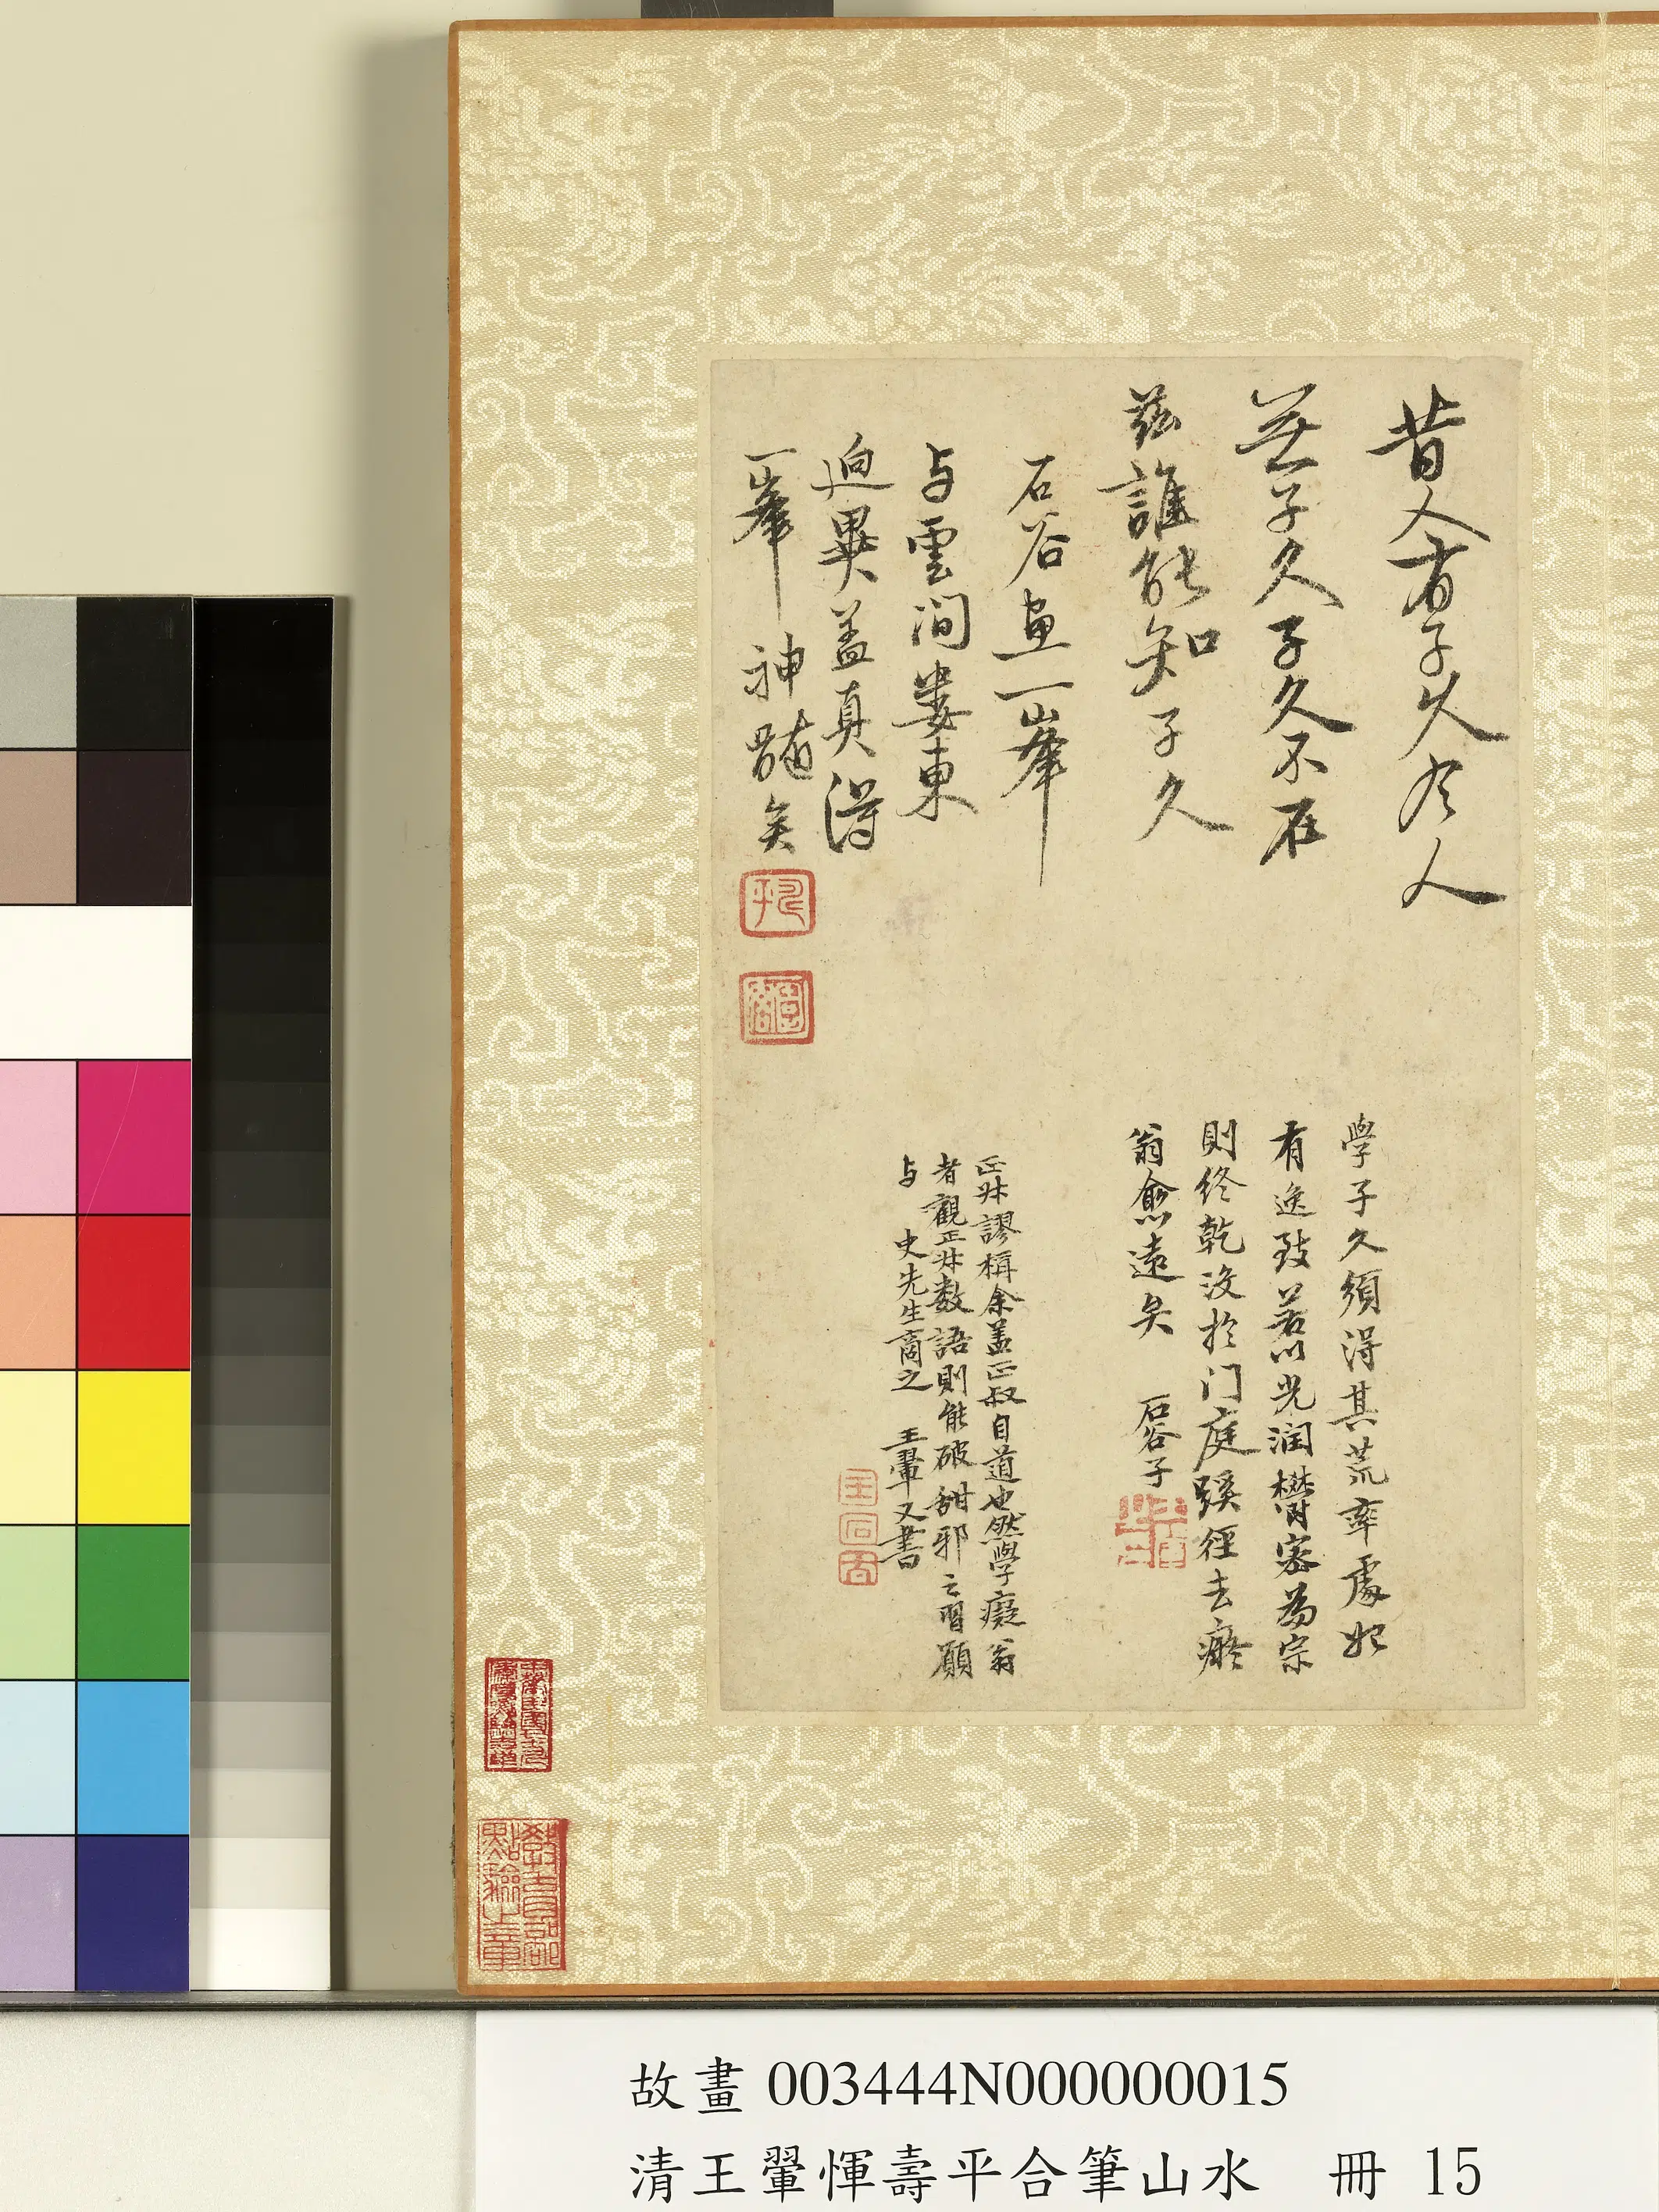 昔人有子久今人
無子久子久不在
茲誰能知子久
石谷畫一峯
与雲間婁東
逈異蓋真得
一峯神髓矣
學子久須得其荒率處始
有逸致若以光潤欝塞為宗
則終乾沒於门庭蹊徑去癡
翁愈遠矣 石谷子
正叔謬稱余蓋正叔自道也然學癡翁
者觀正叔数語則能破甜邪之習願
与 史先生商之 王翬又書
王石谷
教育部
點驗之章
故畫 003444N000000015
清王翬惲壽平合筆山水 冊 15